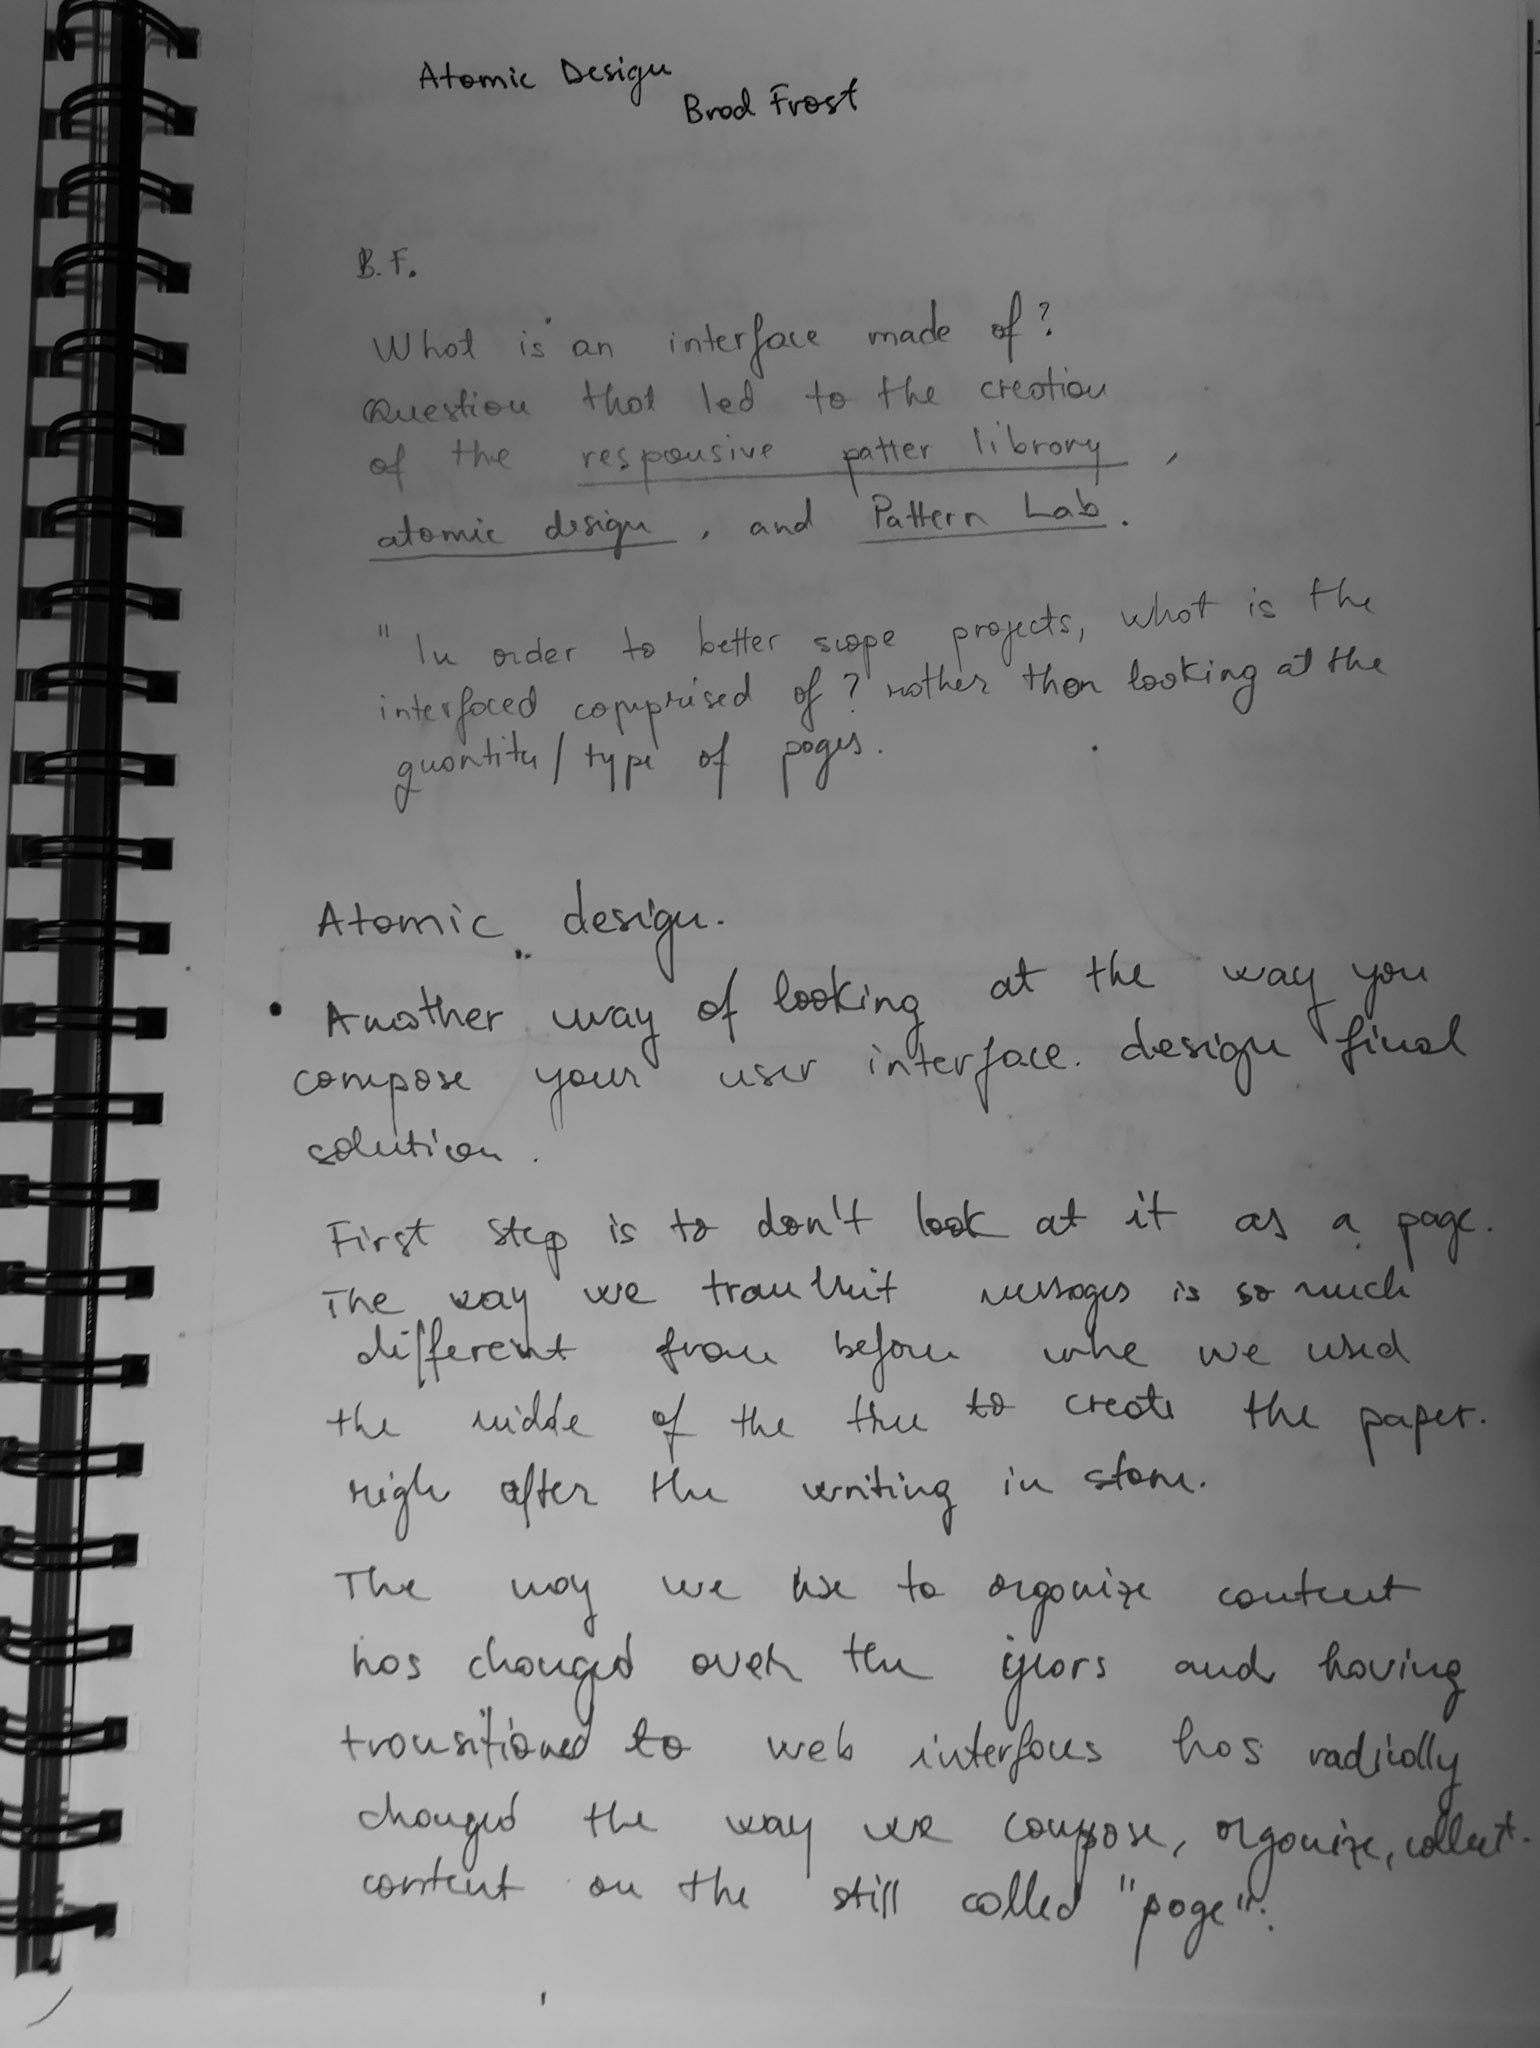 Atomic Design
Brad Frost
B.F.
What is an interface made of?
Question that led to the creation
of the responsive patter library,
atomic design, and Pattern Lab.
"In order to better scope projects, what is the
interfaced comprised of? rather than looking at the
quantity/type of pages.
Atomic design.
• Another way of looking at the way you
compose your user interface. design final
solution.
First step is to don't look at it as a page.
The way we transmit messages is so much
different from before whe we used
the middle of the tree to create the paper.
righ after the writing in stone.
The way we use to organize content
has changed over the years and having
transitioned to web interfaces has radically
changed the way we compose, organize, collect
content on the still called "page".